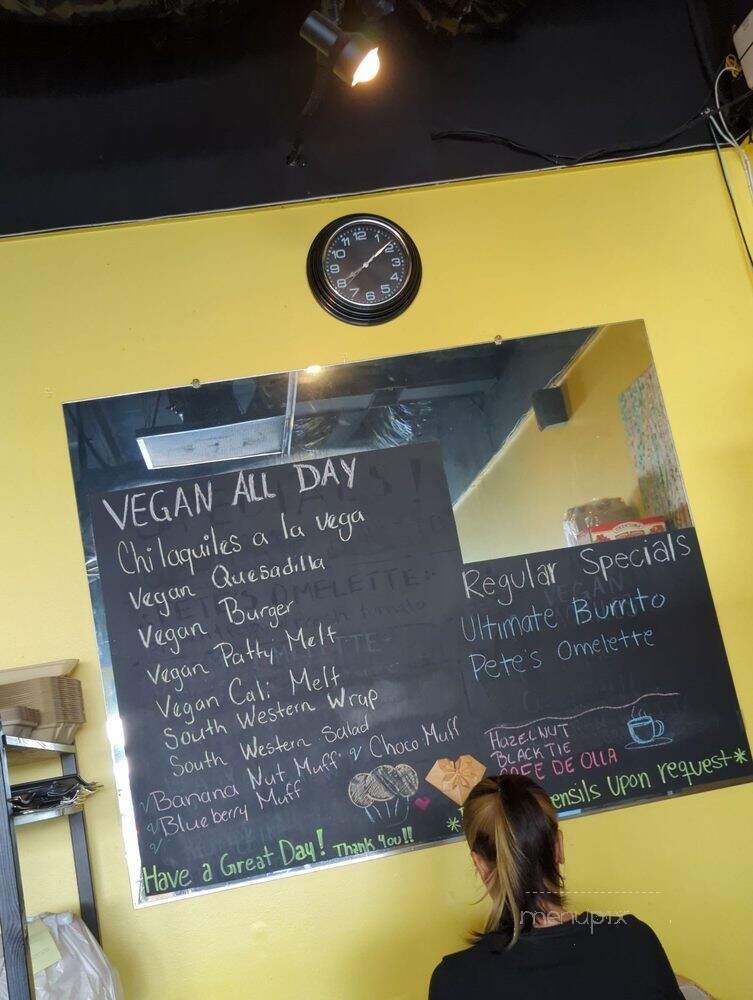 12
11
1
10
2
9
3
8
4
7
6
5
VEGAN ALL DAY
Chilaquiles a la vega
Vegan Quesadilla
Vegan Burger
Vegan Patty Melt
Vegan Cali Melt
South Western Wrap
South Western Salad
Banana Nut Muff. v Choco Muff
v Blueberry Muff
v
Have a Great Day! Thank You!!
Regular Specials
Ultimate Burrito
Pete's Omelette
HAZELNUT
BLACK TIE
CAFE DE OLLA
ensils Upon request*
menupix